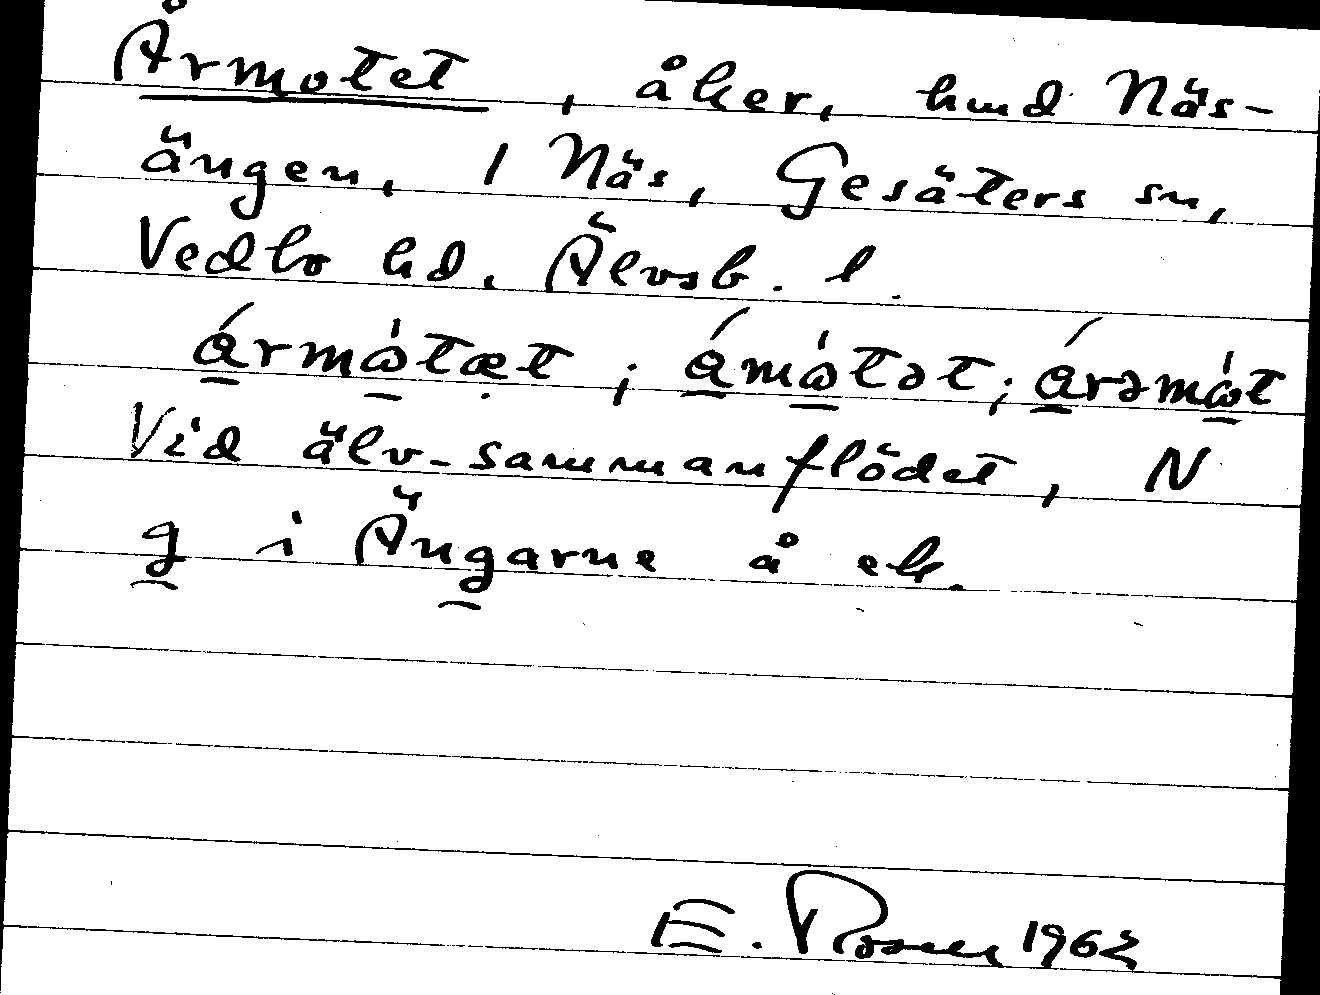 Årmotet, åker, hmd Näs-
ängen, 1 Näs, Gesäters sn,
Vedbo hd. Älvsb. l.
ármω̇tæt; ámω̇tət; árəmω̇t
Vid älv-sammanflödet, N
g i Ängarne å ek.
E. Rosell 1962